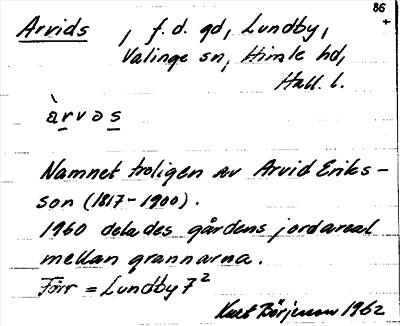 86
+
Arvids, f.d. gd, Lundby,
Valinge sn, Himle hd,
Hall. l.
àrvəs
Namnet troligen av Arvid Eriks-
son (1817-1900).
1960 delades gårdens jordareal
mellan grannarna.
Förr = Lundby 7²
Kurt Börjesson 1962